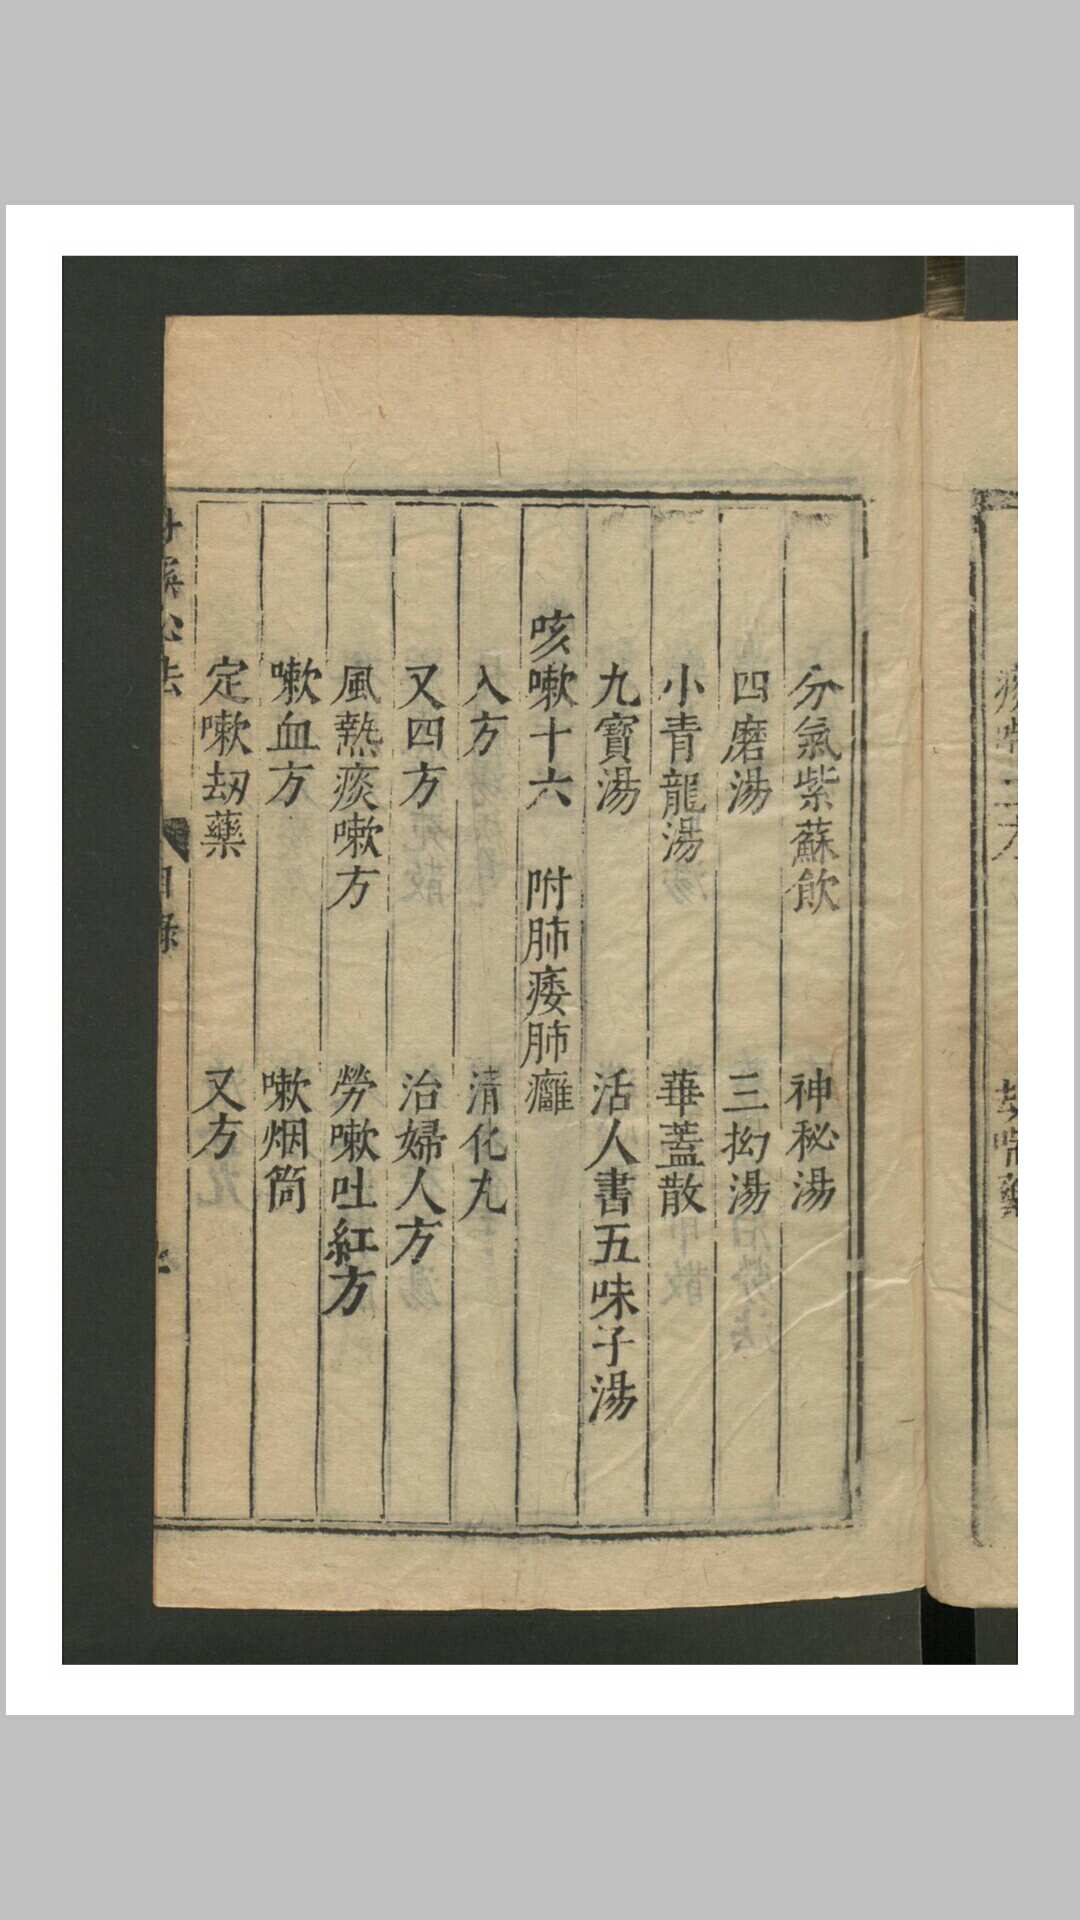 分氣紫蘇飲　神秘湯
四磨湯　三拗湯
小青龍湯　華蓋散
九寶湯　活人書五味子湯
咳嗽十六　附肺痿肺癰
入方　清化丸
又四方　治婦人方
風熱痰嗽方　勞嗽吐紅方
嗽血方　嗽烟筒
定嗽刼藥　又方
心法
目錄